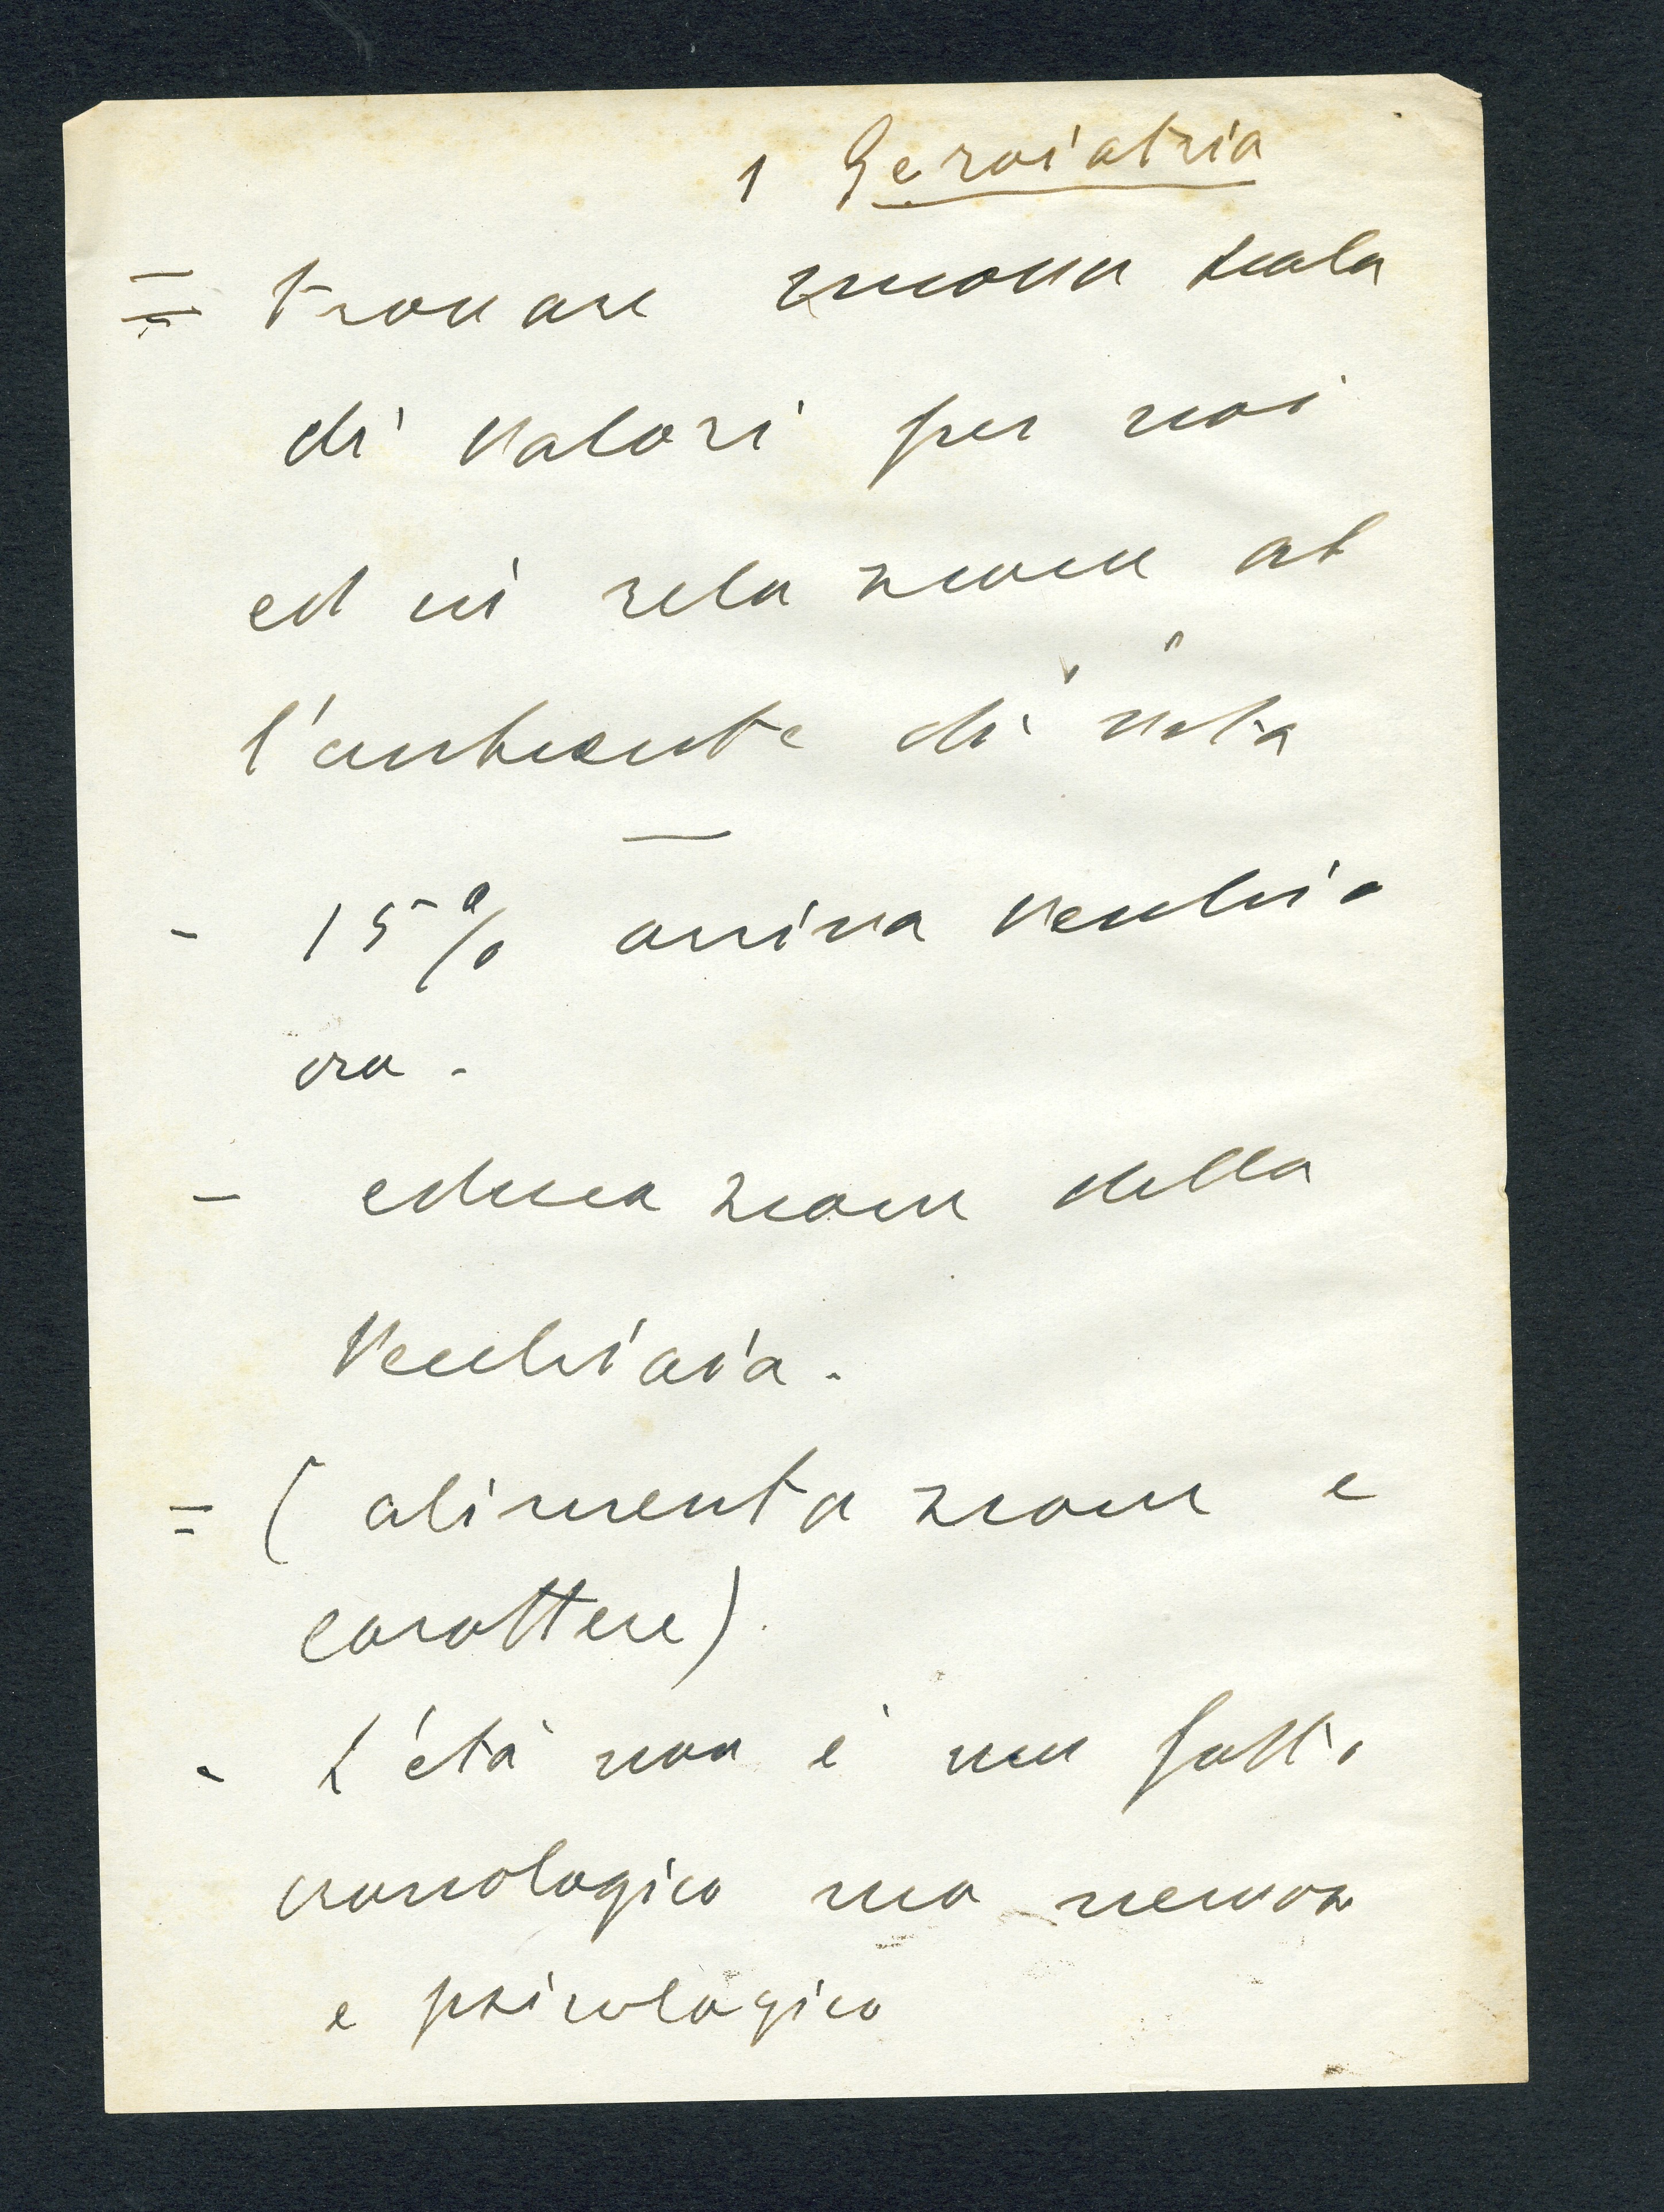 1 Geroiatria
= trovare nuova scala
di valori per noi
ed in relazione al
l'ambiente di vita
- 15% arriva vecchio
ora.
- educazione della
Vecchiaia.
= (alimentazione e
carattere).
- L'età non è un fatto
cronologico ma
e psicologico